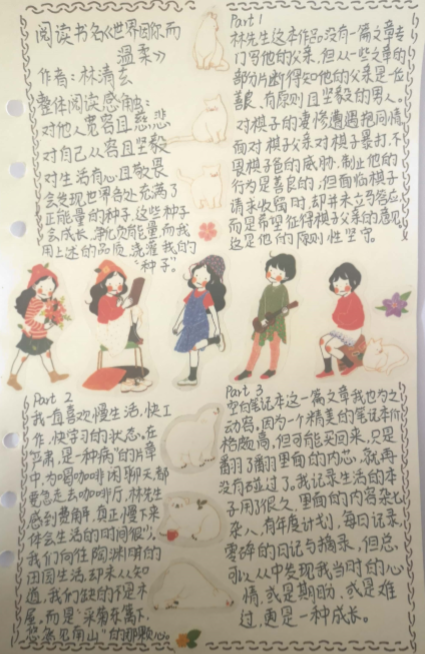 阅读书名《世界因你而
温柔》
作者:林清玄
整体阅读感触:
对他人宽容且慈悲
对自己从容且坚毅
对生活有心且敬畏
会发现世界各处充满了
正能量的种子,这些种子
会成长,净化负能量,而我
用上述的品质,浇灌我的
“种子”。
Part 1
林先生这本作品没有一篇文章专
门写他的父亲,但从一些文章的
部分片断得知他的父亲是一位
善良、有原则且坚毅的男人。
对棋子的妻惨遭遇抱同情,
面对棋子父亲对棋子暴打,不
畏棋子爸的威胁,制止他的
行为是善良的;但面临棋子
请求收留时,却并未立马答应,
而是希望征得棋子父亲的意见,
这是他的原则性坚守。
Part 2
我一直喜欢慢生活,快工
作,快学习的状态,在
《严肃,是一种病》的片章
中,为喝咖啡闲聊天,都
要急走去咖啡厅,林先生
感到费解,真正慢下来
体会生活的时间很少。
我们向往陶渊明的
田园生活,却未从知
道,我们缺的不是木
屋,而是“采菊东篱下,
悠然见南山”的那颗心。
Part 3
空白笔记本这一篇文章我也为之
动容,因为一个精美的笔记本价
格颇高,但可能买回来,只是
翻了翻里面的内芯,就再
没有碰过了,我记录生活的本
子用了很久,里面的内容杂七
杂八,有年度计划,每日记录,
零碎的日记与摘录,但总
可以从中发现我当时的心
情,或是期盼,或是难
过,更是一种成长。